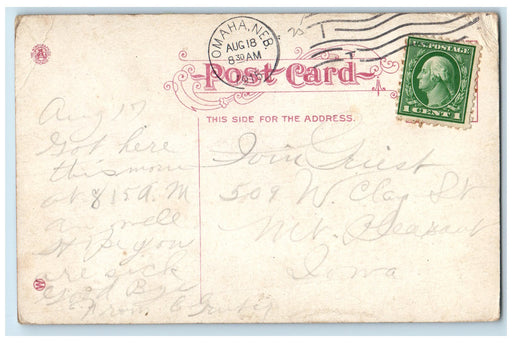 OMAHA, NEB.
AUG 18
8 30 AM
U.S. POSTAGE
1 CENT 1
Post Card
THIS SIDE FOR THE ADDRESS.
Aug 17
Got here
this morn
at 8 15 A. M
am well
Hope you
are sick
Good Bye
From
509 W. Clay St
Mt. Pleasant
Iowa